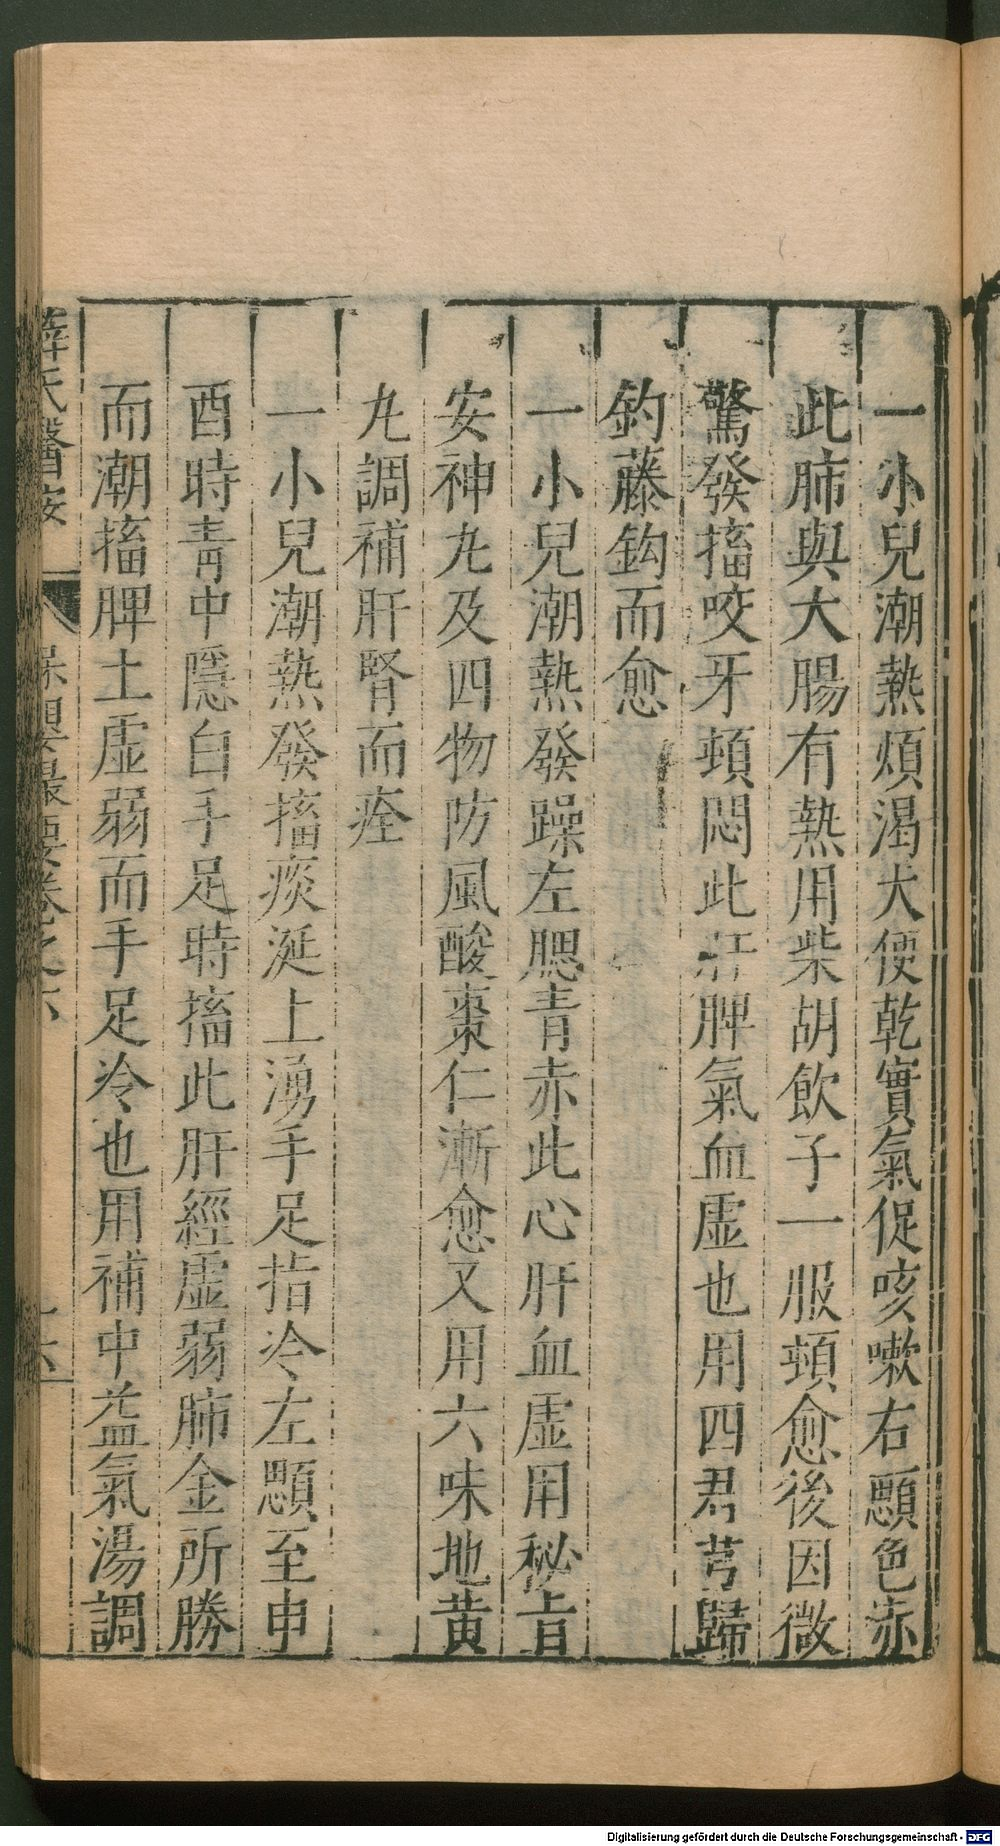 一小兒潮熱煩渴大便乾實氣促咳嗽右顋色赤
此肺與大腸有熱用柴胡飲子一服頓愈後因微
驚發搐咬牙頓悶此肝脾氣血虛也用四君芎歸
釣藤鈎而愈
一小兒潮熱發躁左腮青赤此心肝血虛用秘旨
安神丸及四物防風酸棗仁漸愈又用六味地黄
丸調補肝腎而痊
一小兒潮熱發搐痰涎上湧手足指冷左顋至申
酉時青中隱白手足時搐此肝經虛弱肺金所勝
而潮搐脾土虛弱而手足冷也用補中益氣湯調
薛氏醫按
保嬰撮要卷之六
十六
Digitalisierung gefördert durch die Deutsche Forschungsgemeinschaft - DFG